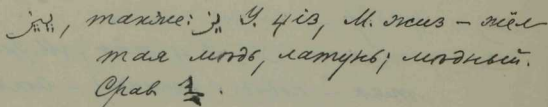 , также: У. чіз, М. жиз – жёл
тая мѣдь, латунь; мѣдный.
Срав